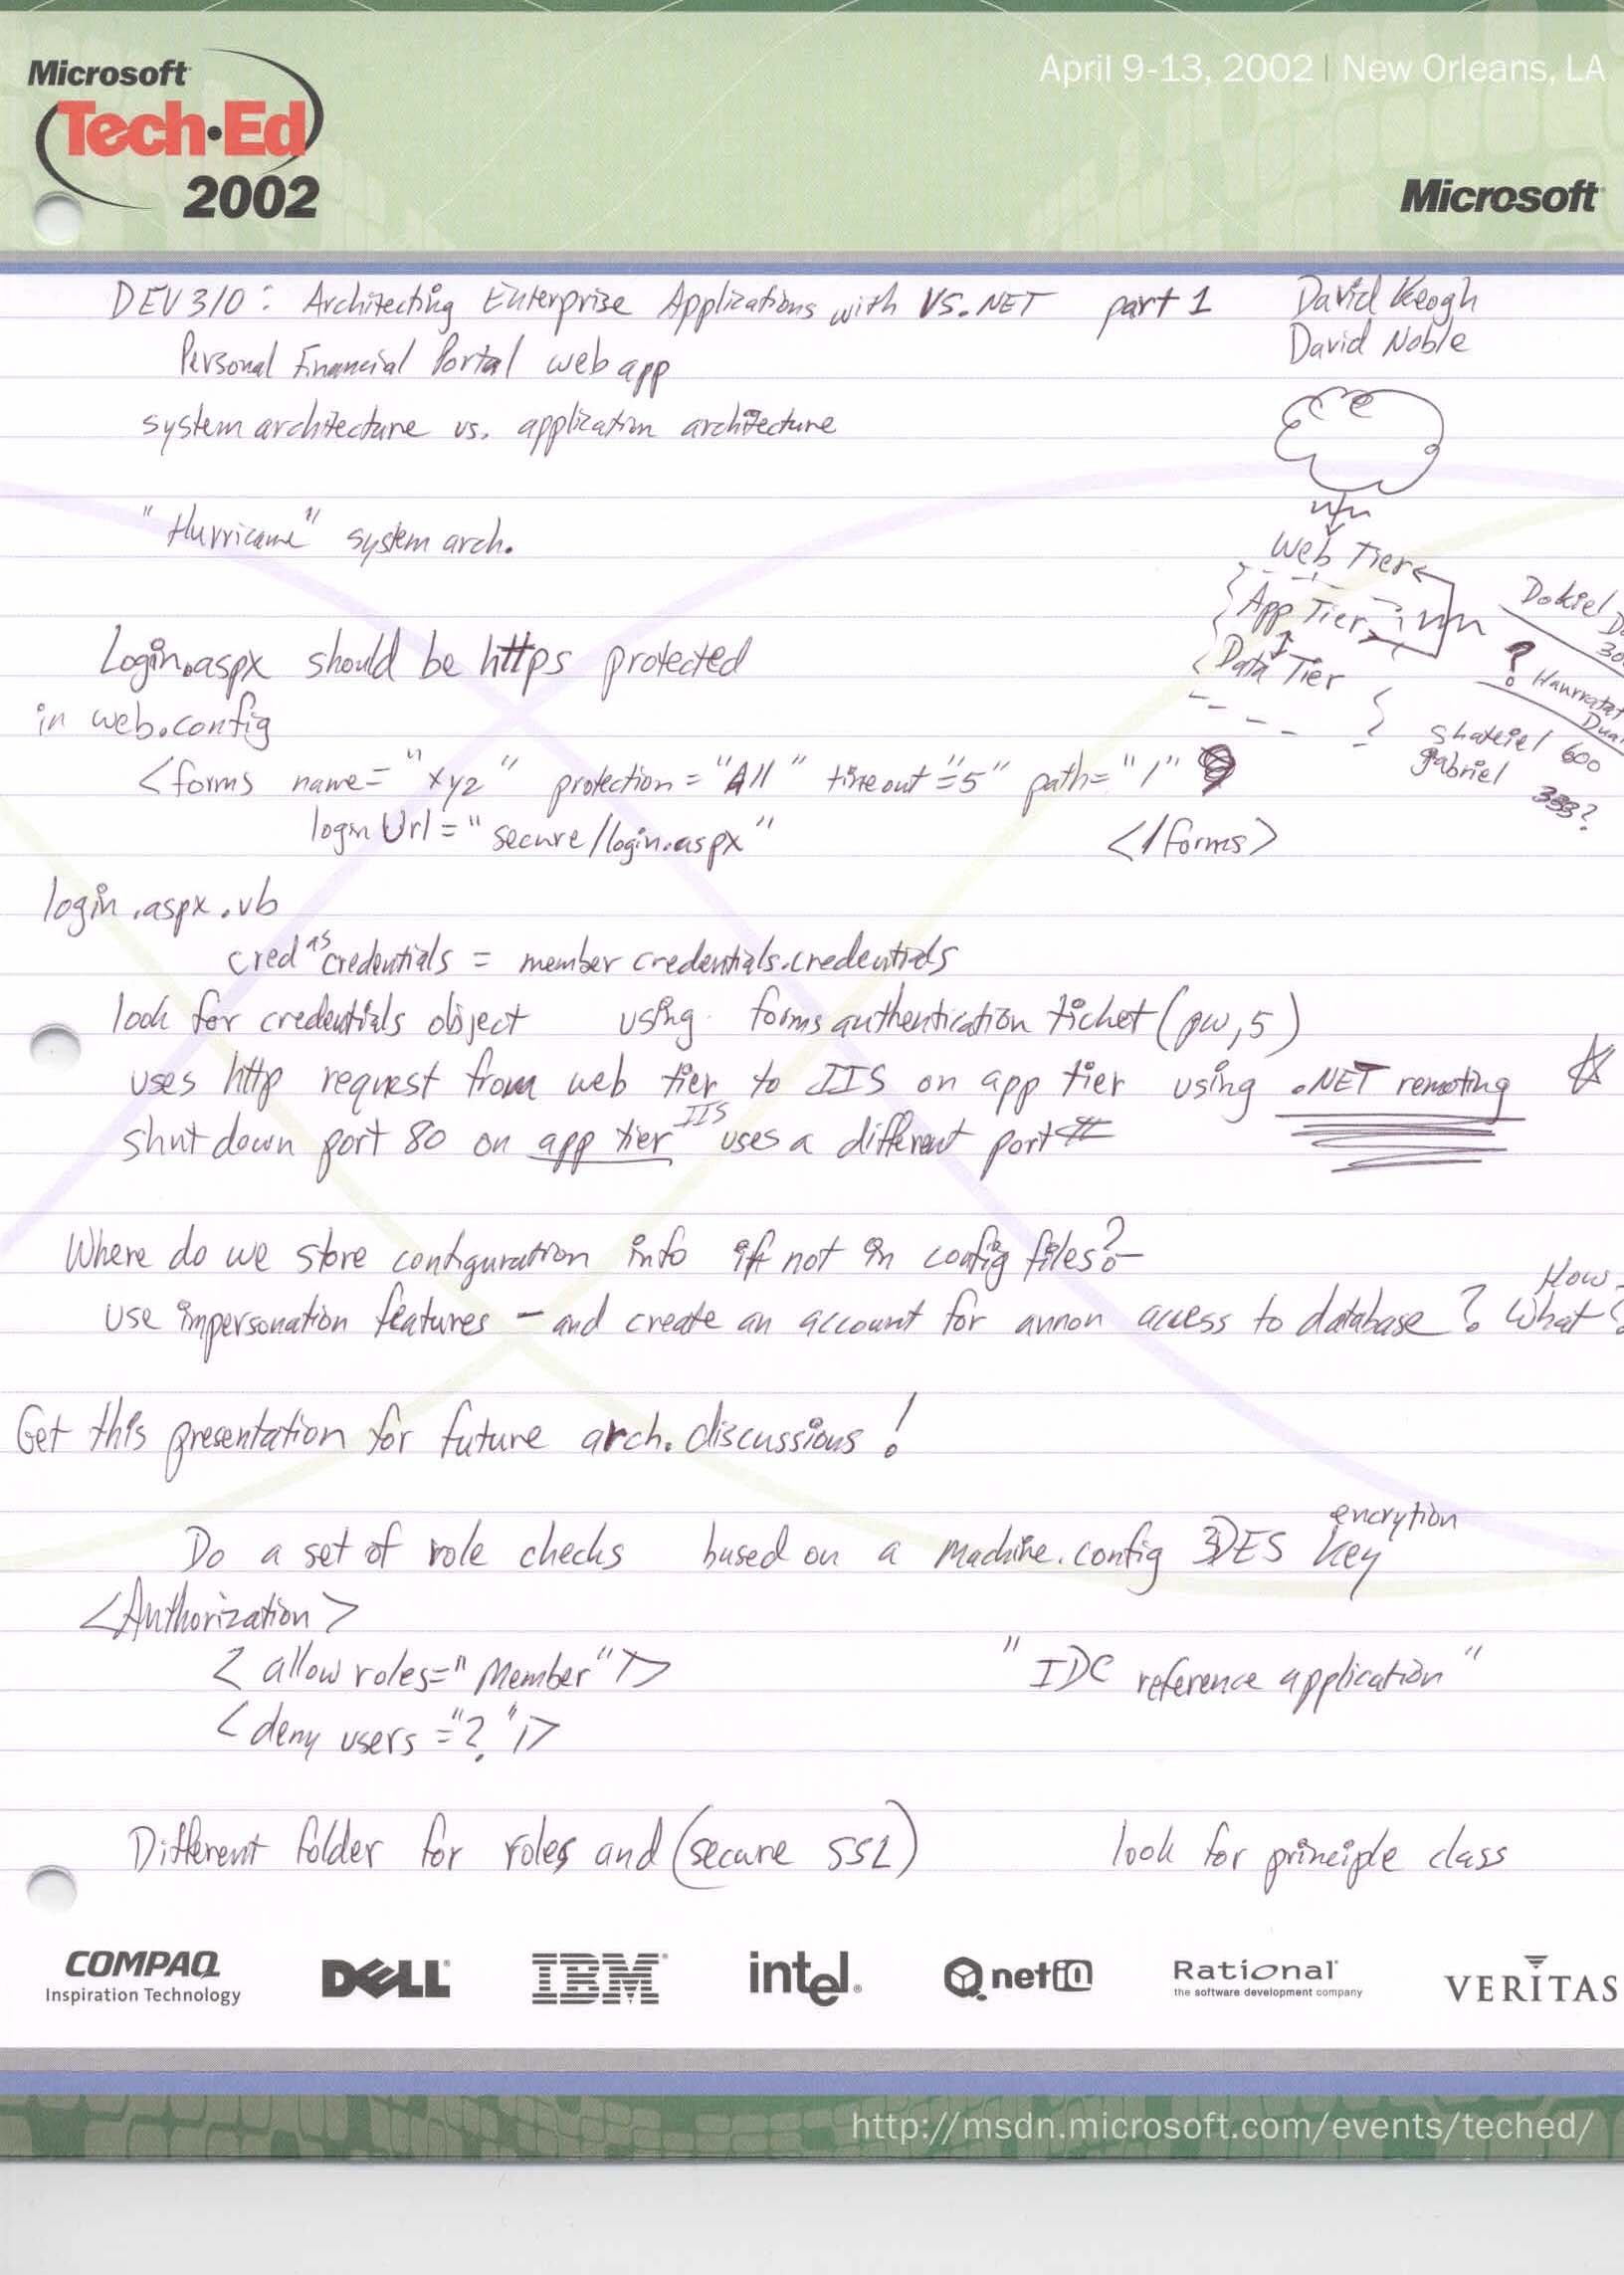 Microsoft
Tech·Ed
2002
April 9-13, 2002 | New Orleans, LA
Microsoft
DEV310: Architecting Enterprise Applications with VS.NET part 1
David Keogh
David Noble
Personal Financial Portal web app
system architecture vs. application architecture
"Hurricane" system arch.
Web Tier
App Tier
Data Tier
Dokiel
30
?
Shateiel 600
gabriel
333?
Login.aspx should be https protected
in web.config
<forms name="xyz" protection="All" timeout="5" path="/"
loginUrl="secure/login.aspx" </forms>
login.aspx.vb
cred as credentials = member credentials.credentials
look for credentials object using forms authentication ticket (pw,5)
uses http request from web tier to IIS on app tier using .NET remoting
shut down port 80 on app tier IIS uses a different port #
Where do we store configuration info if not in config files?
use impersonation features - and create an account for annon access to database? What?
How
Get this presentation for future arch. discussions!
Do a set of role checks based on a Machine.config 3DES encrytion key
<Authorization>
< allow roles="Member"/>
<deny users="?"/>
"IDC reference application"
Different folder for roles and (secure SSL) look for principle class
COMPAQ
Inspiration Technology
DELL
IBM
intel.
netiQ
Rational
the software development company
VERITAS
http://msdn.microsoft.com/events/teched/